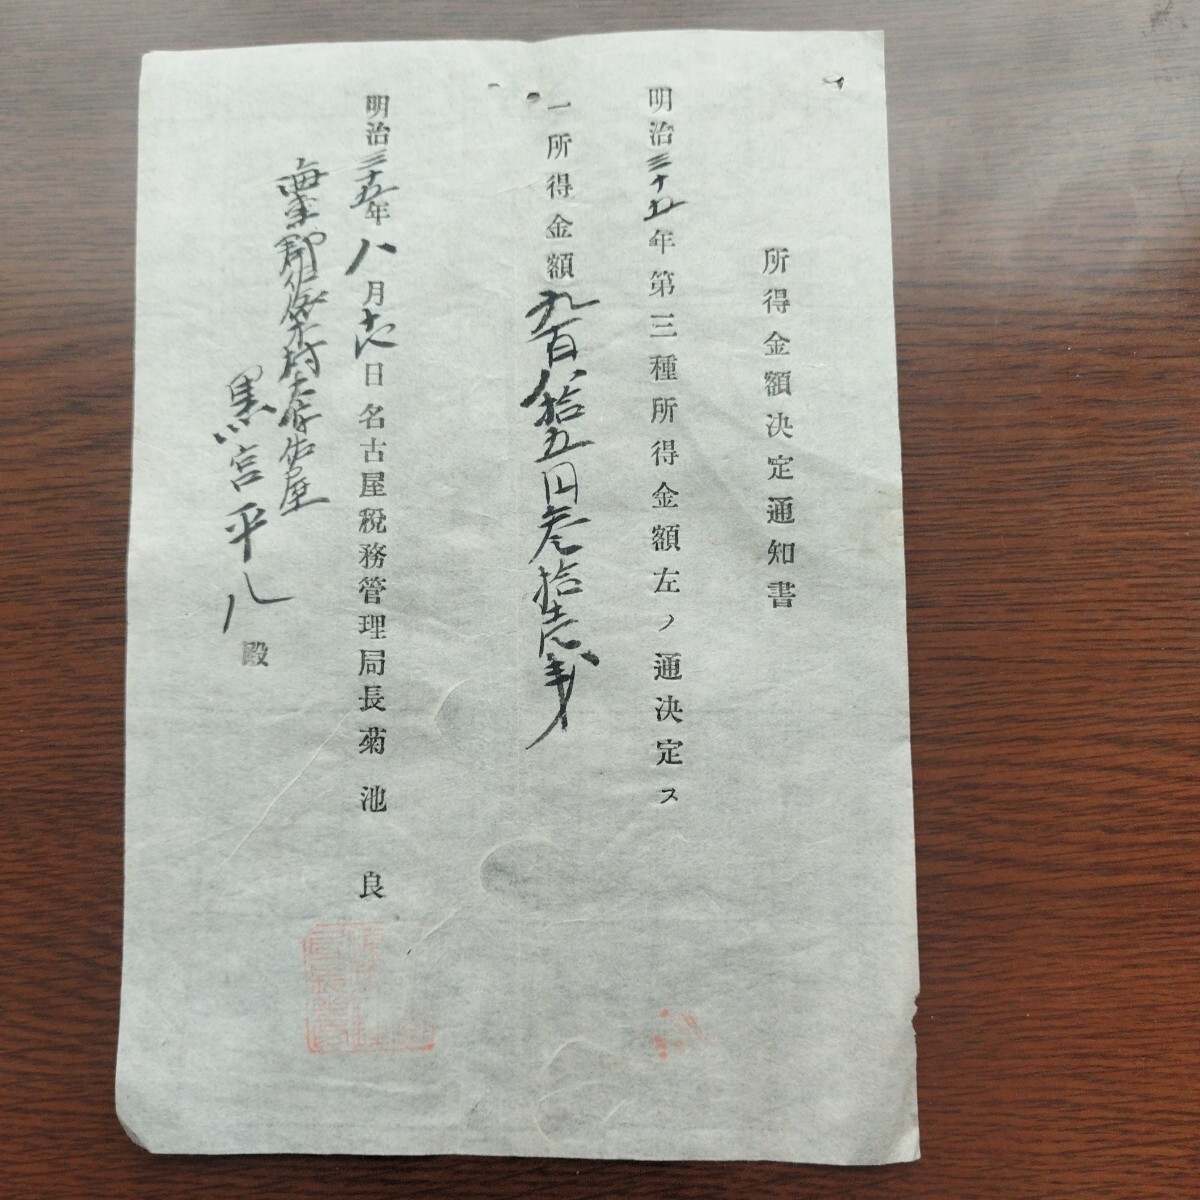 所得金額決定通知書
明治三十五年第三種所得金額左ノ通決定ス
一所得金額九百八拾五円参拾七銭
明治三十五年八月十八日名古屋税務管理局長菊池良
海東郡佐織村大字佐屋
黒宮平八殿